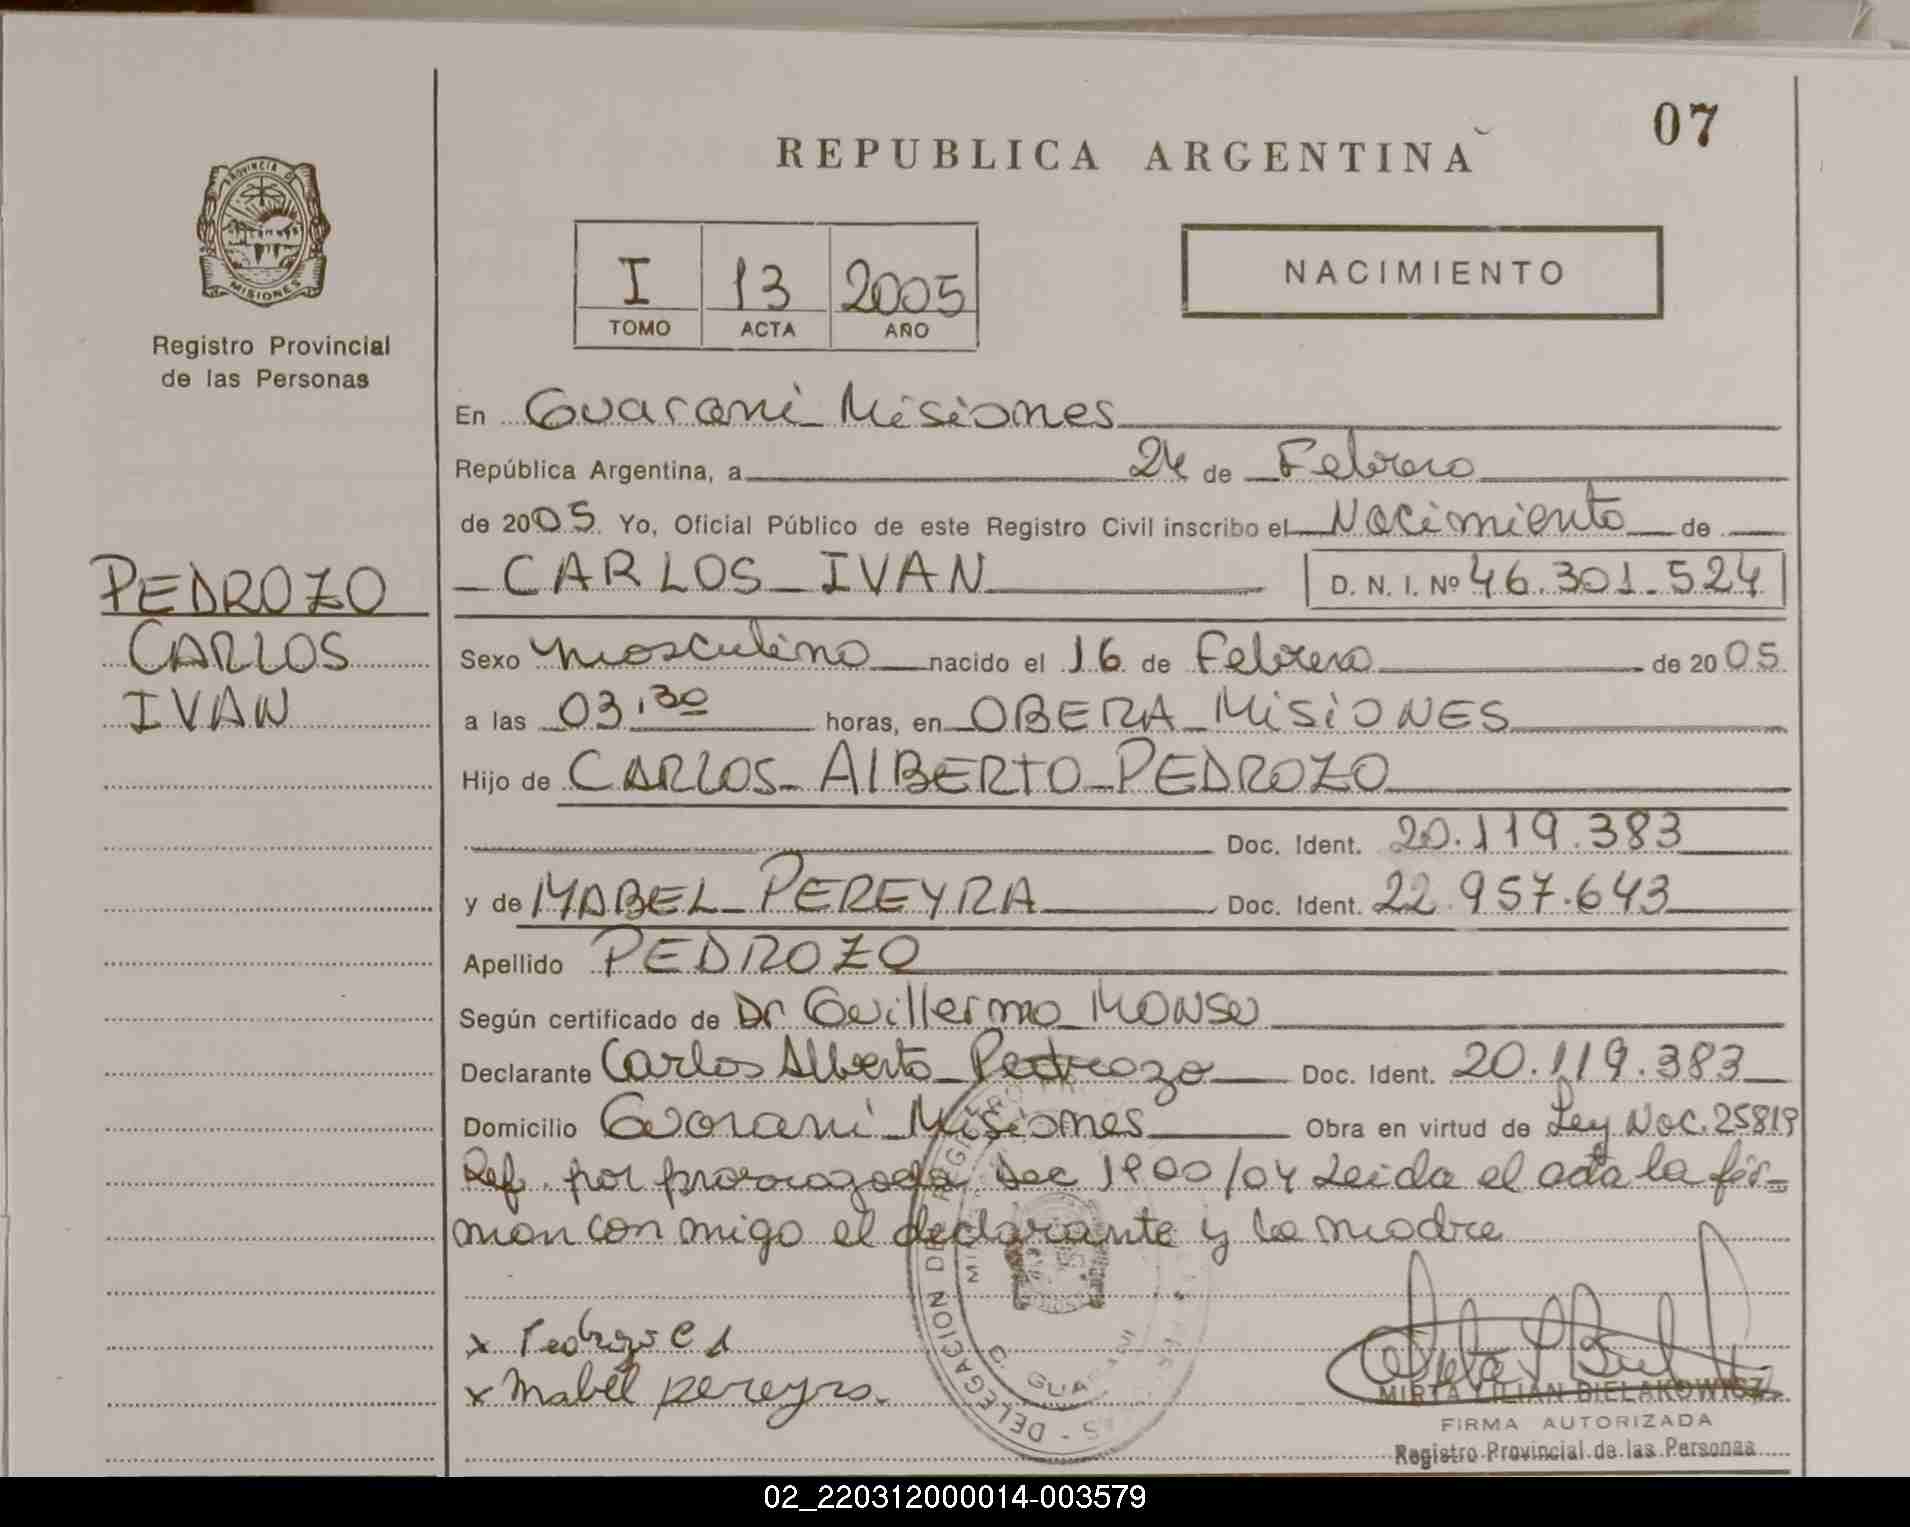 07
REPUBLICA ARGENTINA
PROVINCIA D
MISIONES
Registro Provincial
de las Personas
I 13 2005
TOMO ACTA AÑO
NACIMIENTO
En Guarani Misiones
República Argentina, a 24 de Febrero
de 2005 Yo, Oficial Público de este Registro Civil inscribo el Nacimiento de
PEDROZO
CARLOS
IVAN
CARLOS IVAN D. N. I. Nº 46.301.524
Sexo masculino nacido el 16 de Febrero de 2005
a las 03:30 horas, en OBERA MiSiONES
Hijo de CARLOS ALBERTO PEDROZO
Doc. Ident. 20.119.383
y de MABEL PEREYRA Doc. Ident. 22.957.643
Apellido PEDROZO
Según certificado de Dr Guillermo MONSU
Declarante Carlos Alberto Pedrozo Doc. Ident. 20.119.383
Domicilio Guarani Misiones Obra en virtud de Ley Nac. 25819
Ref. por prorrogada Dec 1900/04 Leida el acta la fir-
man con migo el declarante y la madre
x Pedrozo C A
x Mabel pereyra.
DELEGACION DE REGISTRO
GUARANI
MIRTA LILIAN BIELAKOWICZ
FIRMA AUTORIZADA
Registro Provincial de las Personas
02_220312000014-003579